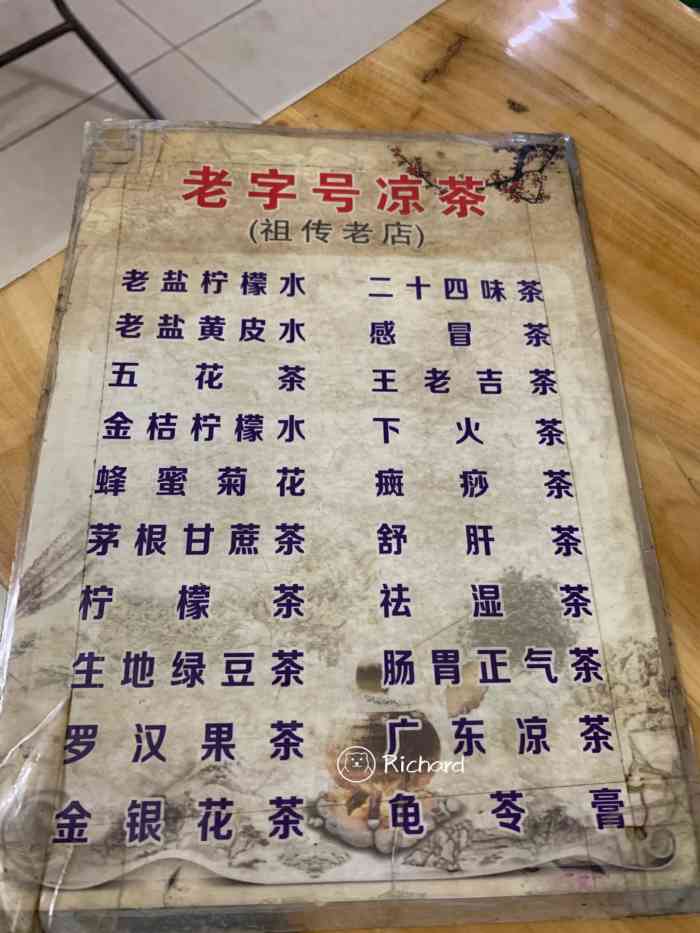 老字号凉茶
(祖传老店)
老盐柠檬水
老盐黄皮水
五花茶
金桔柠檬水
蜂蜜菊花
茅根甘蔗茶
柠檬茶
生地绿豆茶
罗汉果茶
金银花茶
二十四味茶
感冒茶
王老吉茶
下火茶
斑痧茶
舒肝茶
祛湿茶
肠胃正气茶
广东凉茶
龟苓膏
Richard